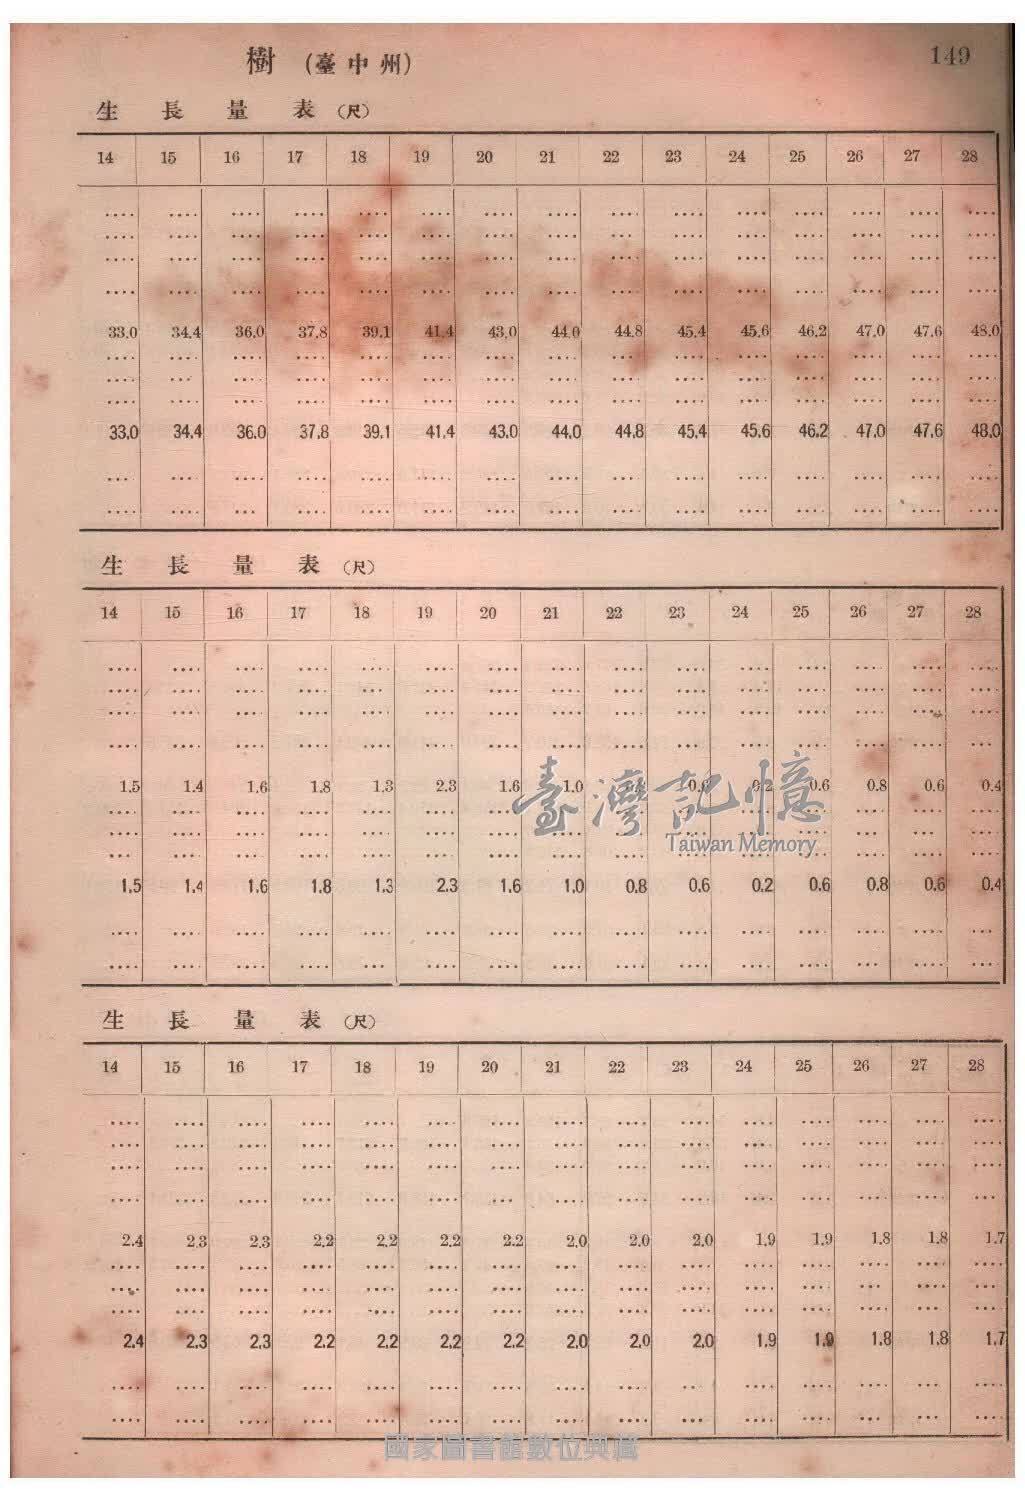 樹 (臺中州)
149
生長量表(尺)
14 15 16 17 18 19 20 21 22 23 24 25 26 27 28
.... .... .... .... .... .... .... .... .... .... .... .... .... .... ....
.... .... .... .... .... .... .... .... .... .... .... .... .... .... ....
.... .... .... .... .... .... .... .... .... .... .... .... .... .... ....
.... .... .... .... .... .... .... .... .... .... .... .... .... .... ....
33.0 34.4 36.0 37.8 39.1 41.4 43.0 44.0 44.8 45.4 45.6 46.2 47.0 47.6 48.0
.... .... .... .... .... .... .... .... .... .... .... .... .... .... ....
.... .... .... .... .... .... .... .... .... .... .... .... .... .... ....
.... .... .... .... .... .... .... .... .... .... .... .... .... .... ....
33.0 34.4 36.0 37.8 39.1 41.4 43.0 44.0 44.8 45.4 45.6 46.2 47.0 47.6 48.0
.... .... .... .... .... .... .... .... .... .... .... .... .... .... ....
.... .... .... .... .... .... .... .... .... .... .... .... .... .... ....
生長量表(尺)
14 15 16 17 18 19 20 21 22 23 24 25 26 27 28
.... .... .... .... .... .... .... .... .... .... .... .... .... .... ....
.... .... .... .... .... .... .... .... .... .... .... .... .... .... ....
.... .... .... .... .... .... .... .... .... .... .... .... .... .... ....
.... .... .... .... .... .... .... .... .... .... .... .... .... .... ....
1.5 1.4 1.6 1.8 1.3 2.3 1.6 1.0 0.8 0.6 0.2 0.6 0.8 0.6 0.4
臺灣記憶
Taiwan Memory
.... .... .... .... .... .... .... .... .... .... .... .... .... .... ....
.... .... .... .... .... .... .... .... .... .... .... .... .... .... ....
.... .... .... .... .... .... .... .... .... .... .... .... .... .... ....
1.5 1.4 1.6 1.8 1.3 2.3 1.6 1.0 0.8 0.6 0.2 0.6 0.8 0.6 0.4
.... .... .... .... .... .... .... .... .... .... .... .... .... .... ....
.... .... .... .... .... .... .... .... .... .... .... .... .... .... ....
生長量表(尺)
14 15 16 17 18 19 20 21 22 23 24 25 26 27 28
.... .... .... .... .... .... .... .... .... .... .... .... .... .... ....
.... .... .... .... .... .... .... .... .... .... .... .... .... .... ....
.... .... .... .... .... .... .... .... .... .... .... .... .... .... ....
.... .... .... .... .... .... .... .... .... .... .... .... .... .... ....
2.4 2.3 2.3 2.2 2.2 2.2 2.2 2.0 2.0 2.0 1.9 1.9 1.8 1.8 1.7
.... .... .... .... .... .... .... .... .... .... .... .... .... .... ....
.... .... .... .... .... .... .... .... .... .... .... .... .... .... ....
.... .... .... .... .... .... .... .... .... .... .... .... .... .... ....
2.4 2.3 2.3 2.2 2.2 2.2 2.2 2.0 2.0 2.0 1.9 1.9 1.8 1.8 1.7
.... .... .... .... .... .... .... .... .... .... .... .... .... .... ....
.... .... .... .... .... .... .... .... .... .... .... .... .... .... ....
國家圖書館數位典藏